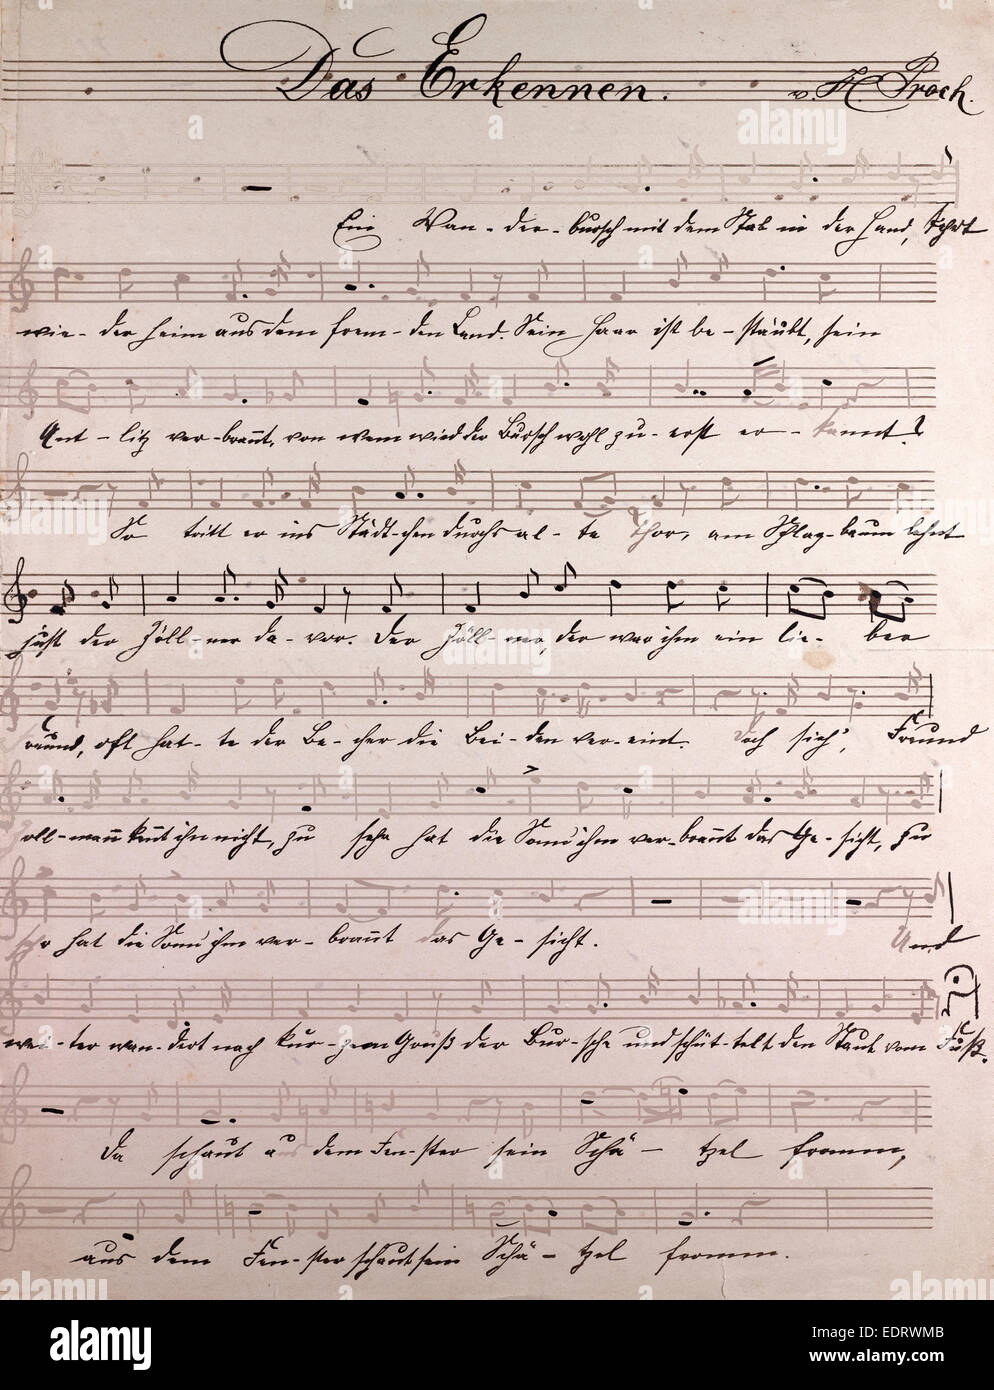 Das Erkennen. v. H. Proch.
Ein Wan-der-bursch mit dem Stab in der Hand, kehrt
wie-der heim aus dem frem-den Land. Sein Haar ist be-stäubt, sein
Ant-litz ver-brannt, von wem wird der Bursch wohl zu-erst er-kannt?
So tritt er ins Städt-chen durchs al-te Thor, am Schlag-baum lehnt
just der Zöll-ner da-vor. Der Zöll-ner, der war ihm ein lie-ber
Freund, oft hat-te der Be-cher die Bei-den ver-eint. Doch sieh', Freund
Zoll-mann kennt ihn nicht, zu sehr hat die Sonn' ihm ver-brannt das Ge-sicht, zu
sehr hat die Sonn' ihm ver-brannt das Ge-sicht. Und
wei-ter wan-dert nach kur-zem Gruß der Bur-sche und schüt-telt den Staub vom Fuß.
Da schaut aus dem Fen-ster sein Schä-tzel fromm,
aus dem Fen-ster schaut sein Schä-tzel fromm.
alamy
a
alamy stock photo
EDRWMB
www.alamy.com